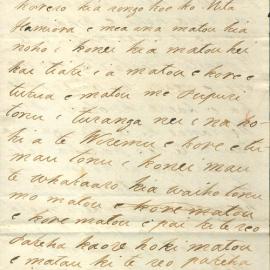 korero kia rongo koe ko Nita
Hamiora e mea ana matou kia
noho i konei kia matou hei
kai tiaki i a matou e kore e
tukua e matou me pupuri
tonu i turanga nei i na ho
ki a te Wiremu e kore e tu
mau tonu i konei mau
te whakaaro kia waiho tonu
mo matou e kore matou
e kore matou e pai ki te reo
pakeha kaore hoki matou
e matau ki te reo pakeha